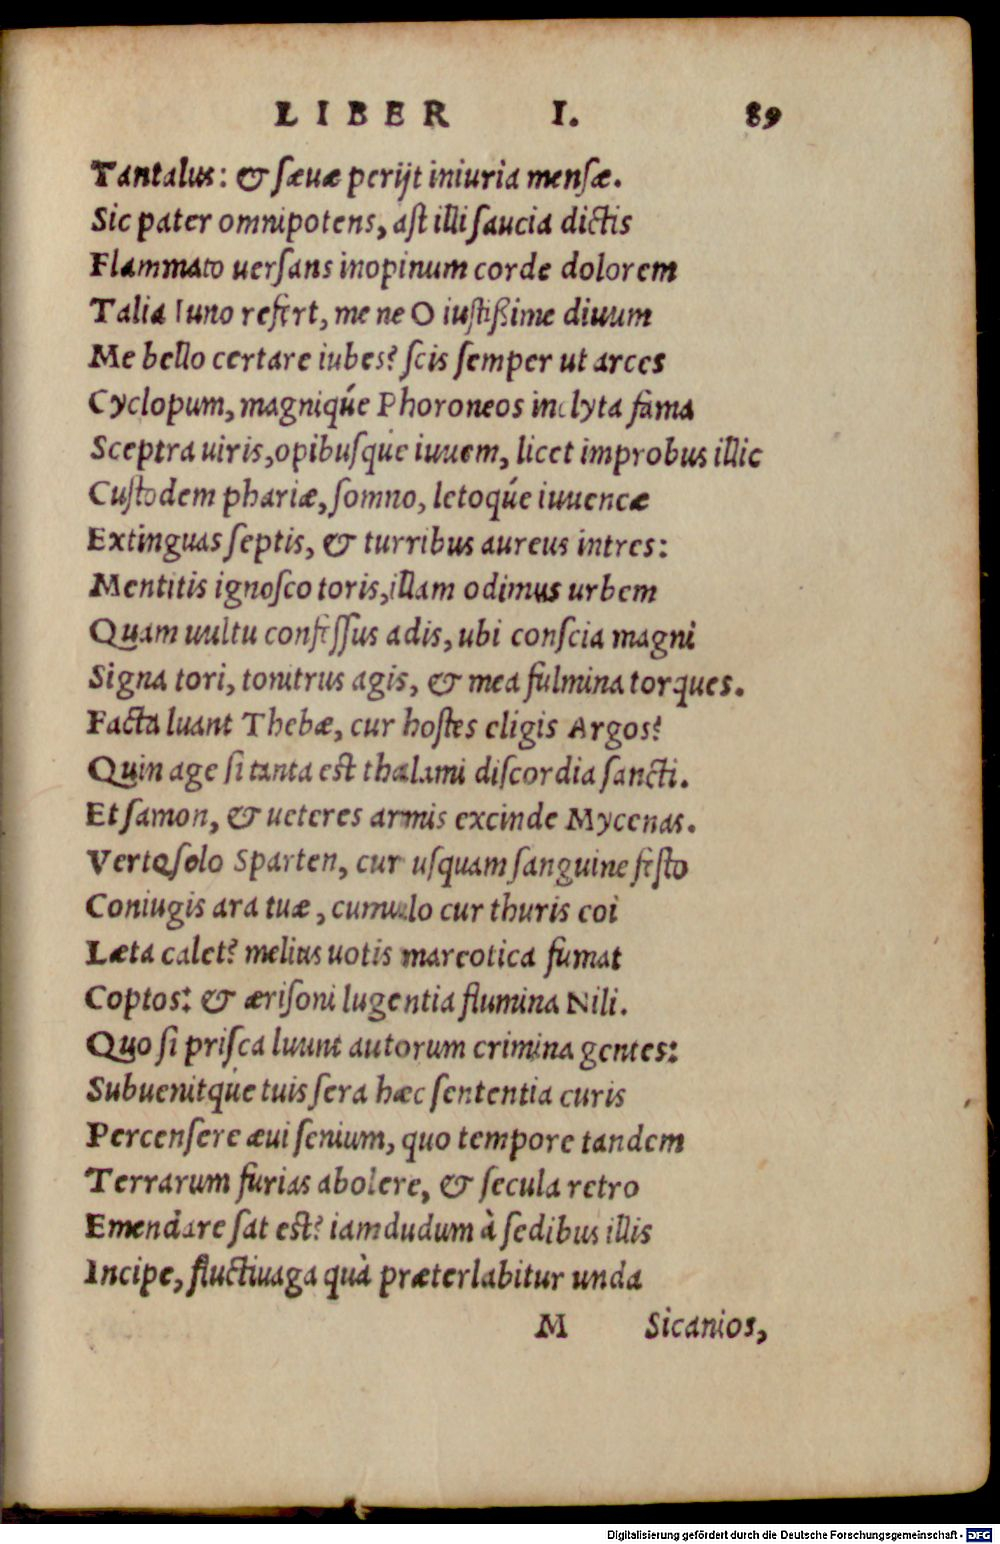 LIBER I. 89
Tantalus: & sæuæ perijt iniuria mensæ.
Sic pater omnipotens, ast illi saucia dictis
Flammato uersans inopinum corde dolorem
Talia Iuno refert, me ne O iustißime diuum
Me bello certare iubes? scis semper ut arces
Cyclopum, magniqúe Phoroneos inclyta fama
Sceptra uiris, opibusque iuuem, licet improbus illic
Custodem phariæ, somno, letoqúe iuuencæ
Extinguas septis, & turribus aureus intres:
Mentitis ignosco toris, illam odimus urbem
Quam uultu confessus adis, ubi conscia magni
Signa tori, tonitrus agis, & mea fulmina torques.
Facta luant Thebæ, cur hostes eligis Argos?
Quin age si tanta est thalami discordia sancti.
Et samon, & ueteres armis excinde Mycenas.
Verte solo Sparten, cur usquam sanguine festo
Coniugis ara tuæ, cumulo cur thuris eoi
Læta calet? melius uotis mareotica fumat
Coptos: & ærisoni lugentia flumina Nili.
Quo si prisca luunt autorum crimina gentes:
Subuenitque tuis sera hæc sententia curis
Percensere æui senium, quo tempore tandem
Terrarum furias abolere, & secula retro
Emendare sat est? iamdudum à sedibus illis
Incipe, fluctiuaga quà præterlabitur unda
M Sicanios,
Digitalisierung gefördert durch die Deutsche Forschungsgemeinschaft - DFG